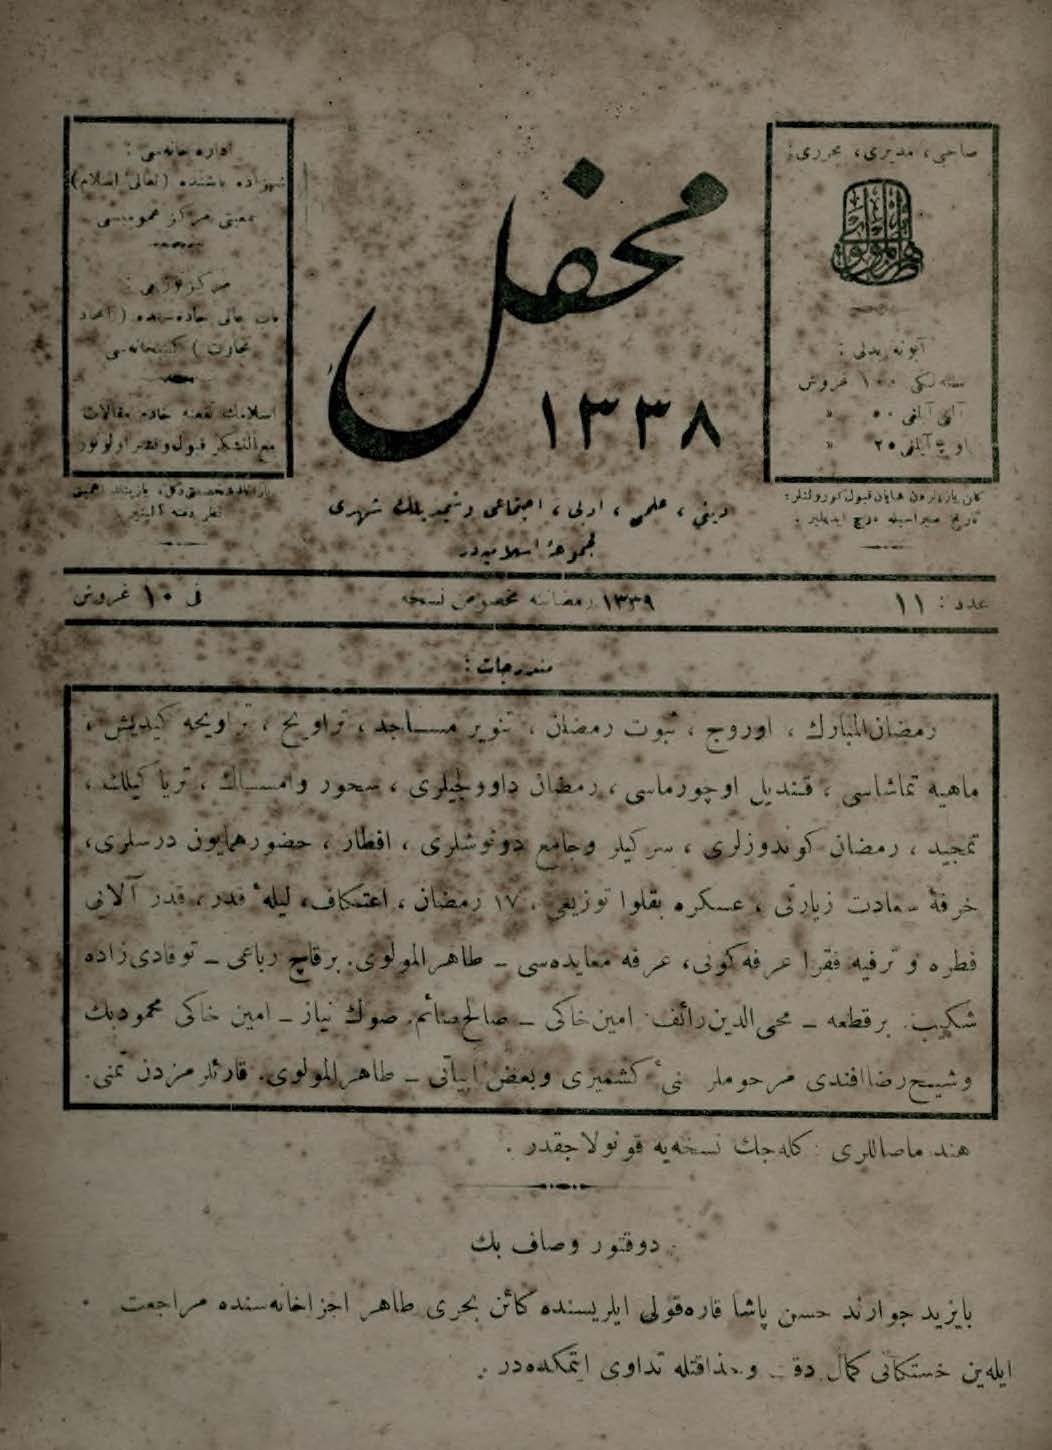 صاحبی ، مدیری ، محرری :
آبونه بدلی :
سنه‌لکی ١٠٠ غروش
آلتی آیلغی ٥٠ »
اوچ آیلغی ٢٥ »
محفل
١٣٣٨
اداره خانه‌سی :
شهزاده باشنده (تعالی اسلام)
جمعیتی مرکز عمومیسی
مرکز توزیعی :
باب عالی جاده‌سنده ( اتحاد
تجارت ) کتبخانه‌سی
اسلامك نفعنه خادم مقالات
مع‌التشکر قبول و نشر اولونور
دینی ، علمی ، ادبی ، اجتماعی شهری
مجموعهٔ اسلامیه‌در
عدد : ١١
١٣٣٩ رمضاننه مخصوص نسخه
فی ١٠ غروش
مندرجات :
رمضان‌المبارك ، اوروج ، ثبوت رمضان ، تنویر مساجد ، تراویح ، تراویحه کیدیش ،
ماهیه تماشاسی ، قندیل اوچورماسی ، رمضان داوولجیلری ، سحور وامساك ، تریاکیلك ،
تمجید ، رمضان کوندوزلری ، سرکیلر وجامع دونوشلری ، افطار ، حضورهمایون درسلری ،
خرقهٔ سعادت زیارتی ، عسکره بقلوا توزیعی ، ١٧ رمضان ، اعتکاف ، لیلهٔ قدر ، قدر آلایی
فطره و ترفیه فقرا عرفه‌کونی ، عرفه معایده‌سی ــ طاهرالمولوی . برقاچ رباعی ــ توقادی‌زاده
شکیب . برقطعه ــ محی‌الدین رائف . امین خاکی ــ صالح صائم . صوك نیاز ــ امین خاکی محمودبك
وشیخ رضا افندی مرحوملر نیٔ کشمیری وبعض ابیاتی ــ طاهرالمولوی . قارئلرمزدن تمنی .
هند ماصاللری : کله‌جك نسخه‌یه قونولاجقدر .
دوقتور وصاف بك
بایزید جوارنده حسن پاشا قاره‌قولی ایلریسنده کائن بحری طاهر اجزاخانه‌سنده مراجعت
ایله‌ین خستکانی کمال دقت وحذاقتله تداوی ایتمکده‌در .